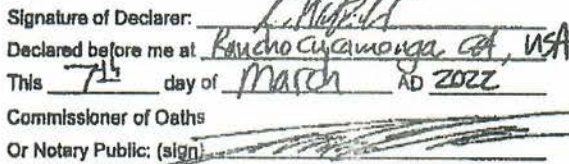 Signature of Declarer:
Declared before me at Rancho Cucamonga, CA, USA
This 7th day of March AD 2022
Commissioner of Oaths
Or Notary Public: (sign)